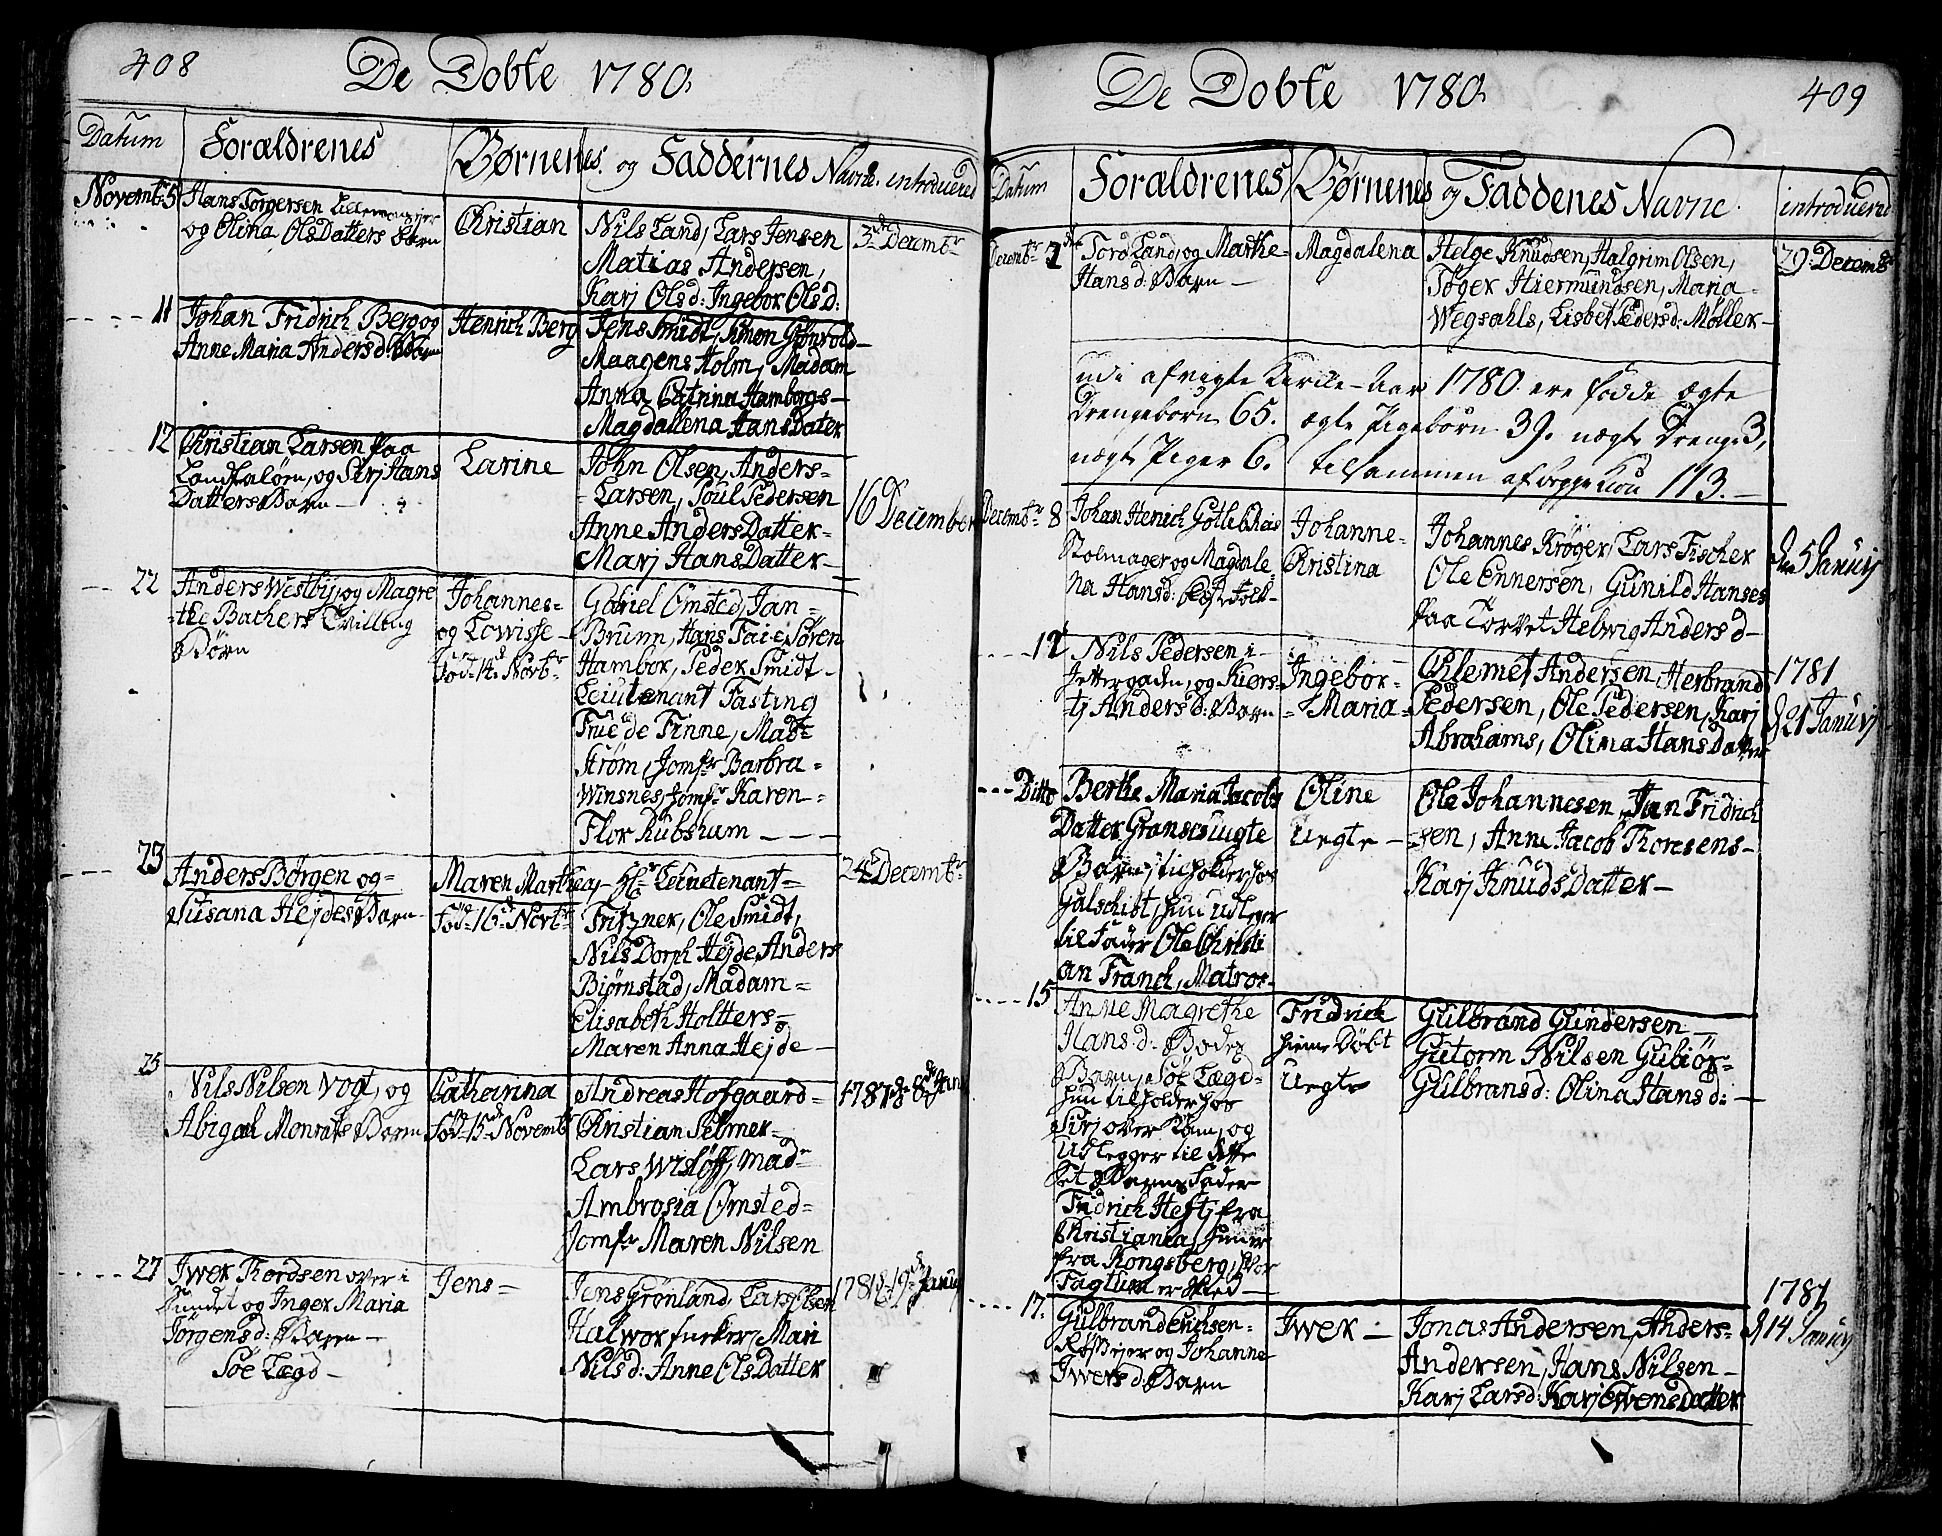 408
De Døbte 1780.
Datum Forældrenes Børnenes og Faddernes Navne. introducered
Novembr 5 Hans Torgersen
og Olina OlsDatters barn
Christian
Nils Land, Lars Jensen
Matias Andersen,
Karj Olsd: Ingebor Olsd:
3 Decembr
11 Johan Fridrich Berg og
Anne Maria Andersd Barn
Henrich Berg
Jens Smidt, Simon Grønvold
Maagens Holm, Madam
Anna Catrina Hamborgs
Magdalena HansDater
12 Christian Larsen paa
og Sirj Hans
Datters Barn
Larine
John Olsen, Anders
Larsen, Poul Pedersen
Anne AndersDatter
Marj HansDatter
16 December
22 Anders Westbÿ, og Magre
the Bachers Tvilling
Børn
Johannes
og Lowisse
fød 14d Novbr
Gabriel Omsted, Jan
Brunn, Hans Faie, Søren
Hambor, Peder Smidt
Leiutenant Fasting
Frue de Finne, Mad
Strøm, Jomfr Barbra
Winsnes, Jomfr Karen
Flor Kubshum
23 Anders Børgen og
Susana Hejdes Barn
Maren Marthea
fød 16d Novbr
Hr Leiutenant
Fritzner, Ole Smidt,
Nils Dorph Hejde, Anders
Biørnstad, Madam
Elisabeth Holtters
Maren Anna Hejde
24 Decembr
25
Nils Nilsen Vogt, og
Abigael Monrats Barn
Catharina
fød 15d Novembr
Andreas Hofgaard
Christian Selmer
Lars Wisløff, Mad
Ambrosia Omsted
Jomfr Maren Nilsen
1781 d 8d Janu
27 Iwer Thordsen over i
Sundet og Inger Maria
Jørgensd: Barn
Søe Lægd
Jens
Jens Grønland, Lars Olsen
Halwor furker, Mari
Nilsd: Anne OlsDatter
1781 d 19d Januij
De Døbte 1780.
409
Datum Forældrenes Børnenes og Faddenes Navne. introducered
Decembr 3 Tord Land, og Marthe
Hansd: Barn
Magdalena
Helge Knudsen, Halgrim Olsen,
Toger Hiermundsen, Maria
Wegsahls, Lisbet Pedersd: Møller
29 Decembr
udi afvigte Kirke-Aar 1780 ere fødde ægte
Drengebørn 65. ægte Pigebørn 39. uægte Drenge 3,
uægte Piger 6. tilsammen 113.
Decembr 8 Johan Henich Gotleb
Stolmager og Magdale
na Hansd: Folk
Johanne
Christina
Johannes Krøger, Lars Fischer
Ole Ennersen, Gunild Hanses
paa Torvet Helwig Andersd
d 5 Januij
12 Nils Pedersen i
og Kiers
tj Andersd: Barn
Ingebor
Maria
Clemet Andersen, Herbrand
Pedersen, Ole Pedersen, Karj
Abrahams, Olina HansDatter
1781
d 21 Januij
Ditto Berthe Maria Jacobs
Datter Granes uegte
Barn, tilholder hos
Galschiøt, hun udleger
til Fader Ole Christi
an Franck, Matros
Oline
Uegte
Ole Johannesen, Jan Fridrich
sen, Anne Jacob Thoresens
Karj KnudsDatter
15 Anne Magrethe
Hansd: Bodes
Barn, Søe Lægd
hun tilholder hos
Sirj over Aan, og
Udlegger til dette
sit Barns Fader
Fridrich Heftj fra
Christiania, hun er
fra Kongsberg, hvor
Fridrick
hieme Døbt
Uegte
Gulbrand Gundersen
Gutorm Nilsen Gubiør
Gulbransd: Olina Hansd:
17. Gulbrand Erichsen
og Johanne
Iwersd: Barn
Iwer
Jonas Andersen, Anders
Andersen, Hans Nilsen
Karj Larsd: Karj EwensDatter
1781
d 14 Januij